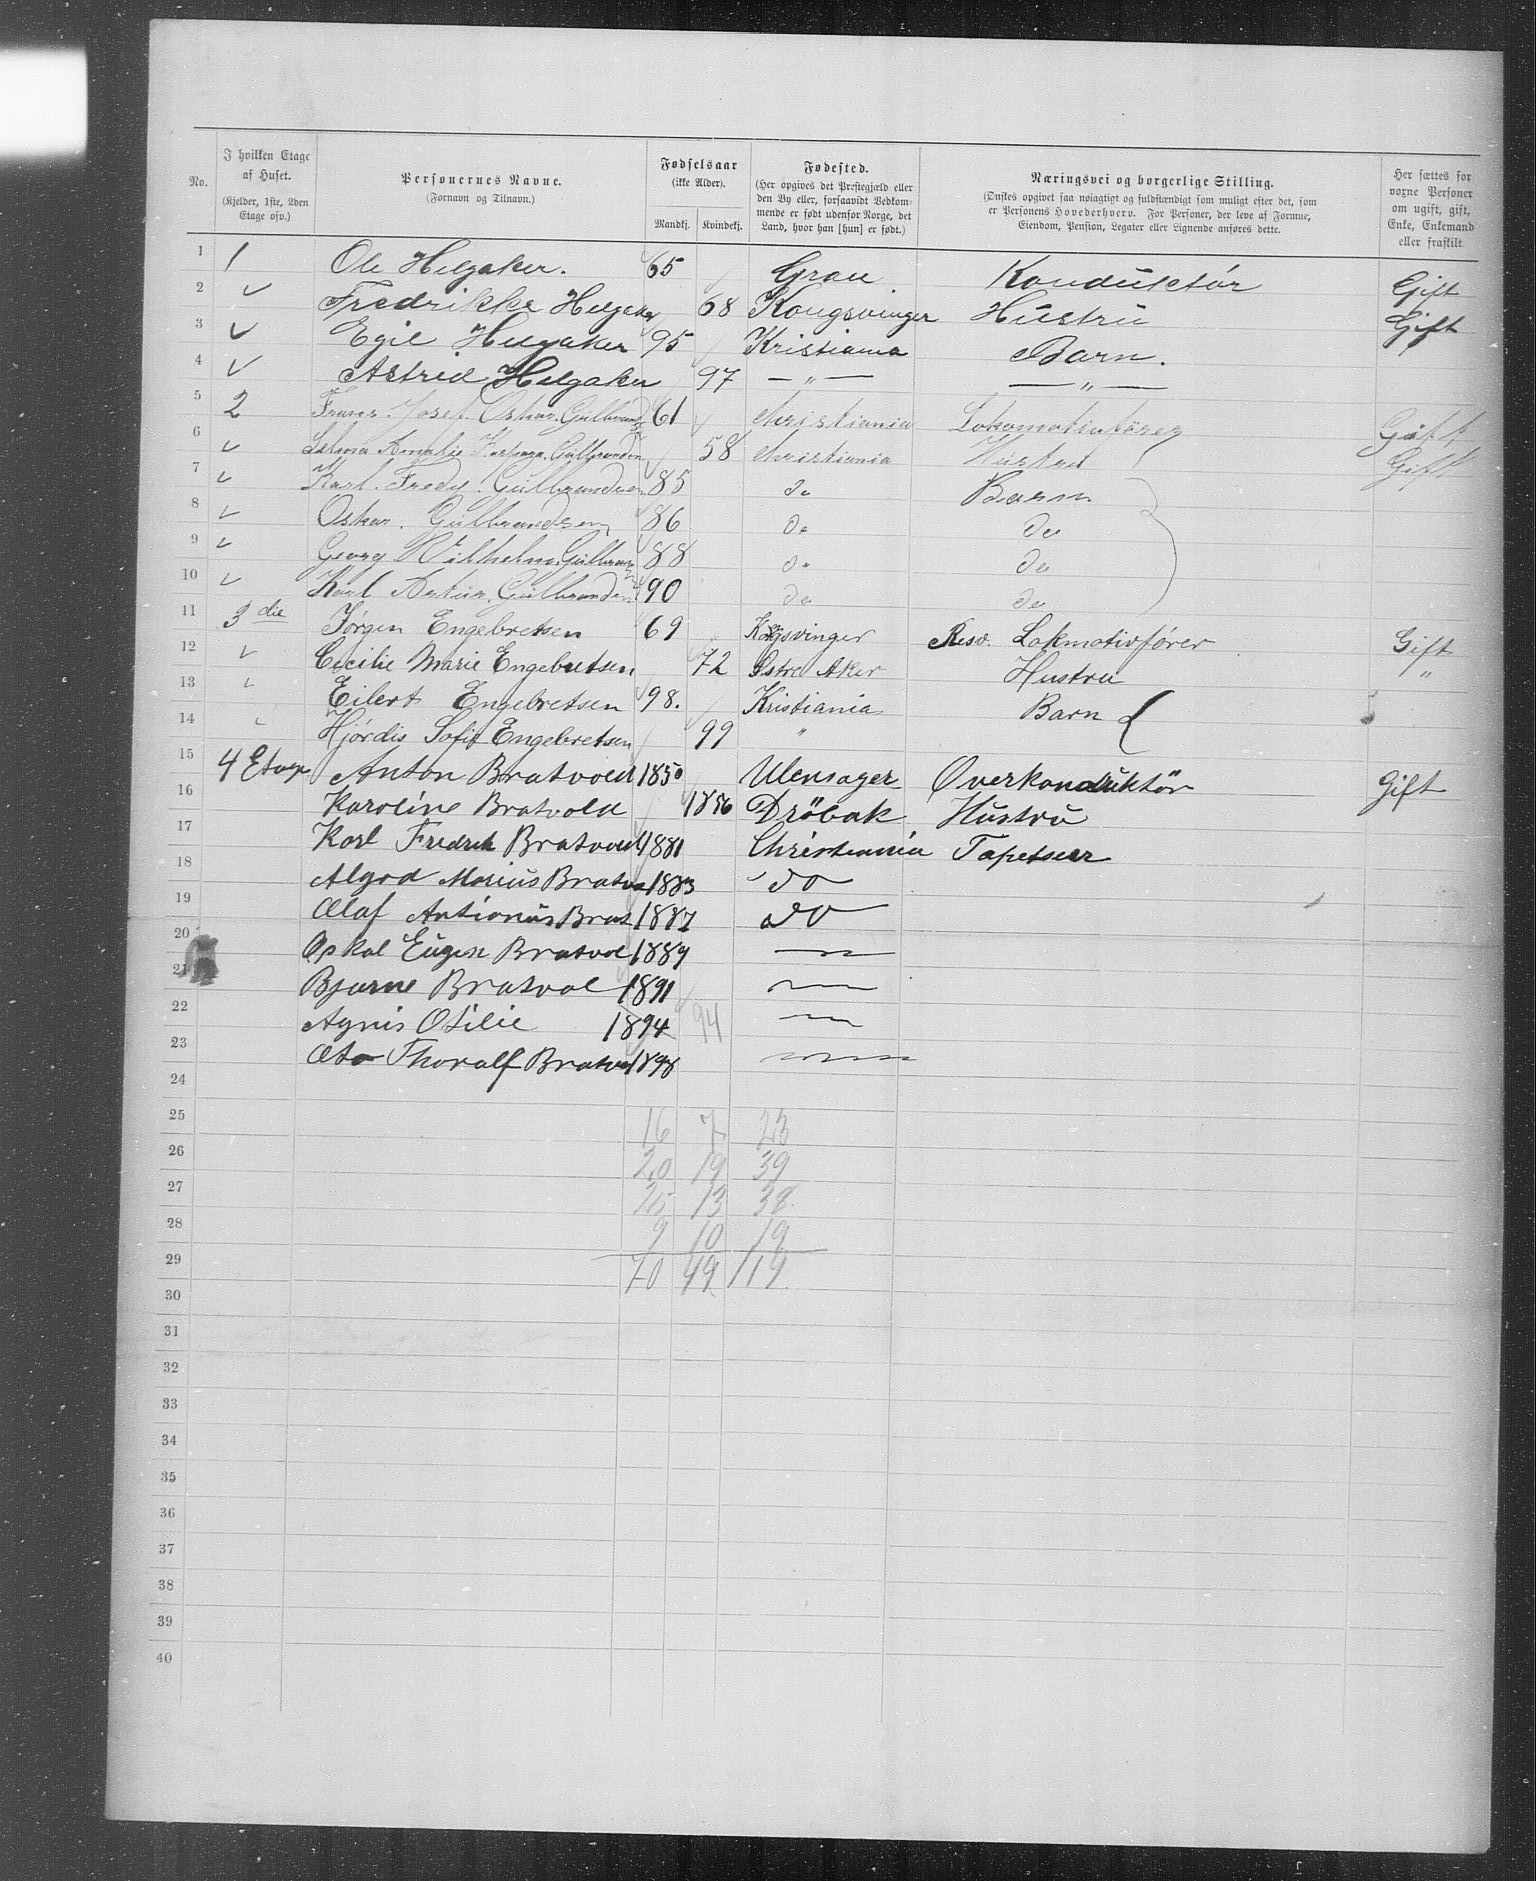 No. | I hvilken Etage af Huset. (Kjelder, 1ste, 2den Etage osv.) | Personernes Navne. (Fornavn og Tilnavn.) | Fødselsaar (ikke Alder). Mandkj. | Kvindekj. | Fødested. (Her opgives det Præstegjæld eller den By eller, forsaavidt Vedkommende er født udenfor Norge, det Land, hvor han [hun] er født.) | Næringsvei og borgerlige Stilling. (Ønskes opgivet saa nøiagtigt og fuldstændigt som muligt efter det, som er Personens Hovederhverv. For Personer, der leve af Formue, Eiendom, Pension, Legater eller Lignende anføres dette. | Her sættes for voxne Personer om ugift, gift, Enke, Enkemand eller fraskilt.
1 | 1 | Ole Helgaker. | 65 | | Gran | Konduktör | Gift
2 | ✓ | Fredrikke Helgaker | | 68 | Kongsvinger | Hustru | Gift
3 | ✓ | Egil Helgaker | 95 | | Kristiania | Barn.
4 | ✓ | Astrid Helgaker | | 97 | — " — | — " —
5 | 2 | Josef Oskar Gulbrands | 61 | | Christiania | Lokomotivförer | Gift
6 | ✓ | Amalie Gulbrandsen | | 58 | Christiania | Hustru | Gift
7 | ✓ | Karl. Fredy. Gulbrandsen | 85 | | do | Barn
8 | ✓ | Oskar. Gulbrandsen | 86 | | do | do
9 | ✓ | Georg Vilhelm Gulbrandsen | 88 | | do | do
10 | ✓ | Karl Artur. Gulbrandsen | 90 | | do | do
11 | 3 die | Jørgen Engebretsen | 69 | | Kongsvinger | Resv. Lokmotivfører | Gift
12 | ✓ | Cecilie Marie Engebretsen | | 72 | Østre Aker | Hustru | "
13 | ✓ | Eilert Engebretsen | 98. | | Kristiania | Barn
14 | ✓ | Hjørdis Sofie Engebretsen | | 99 | "
15 | 4 Etage | Anton Bratvold | 1850 | | Ulensager | Overkonduktör | Gift
16 | Karoline Bratvold | | 1856 | Dröbak | Hustru
17 | Karl Fredrik Bratvold | 1881 | | Christiania | Tapetserer
18 | Marius Bratvo | 1883 | | do
19 | Olaf Antionus Brat | 1887 | | do
20 | Eugen Bratvol | 1889 | | —
21 | Bjarne Bratvol | 1891 | | —
22 | Agnis Otilie | 1894 | 94 | —
23 | Oto Thoralf Bratvo | 1898 | | —
24
25 | 16 | 7 | 23
26 | 20 | 19 | 39
27 | 25 | 13 | 38
28 | 9 | 10 | 19
29 | 70 | 49 | 119
30
31
32
33
34
35
36
37
38
39
40